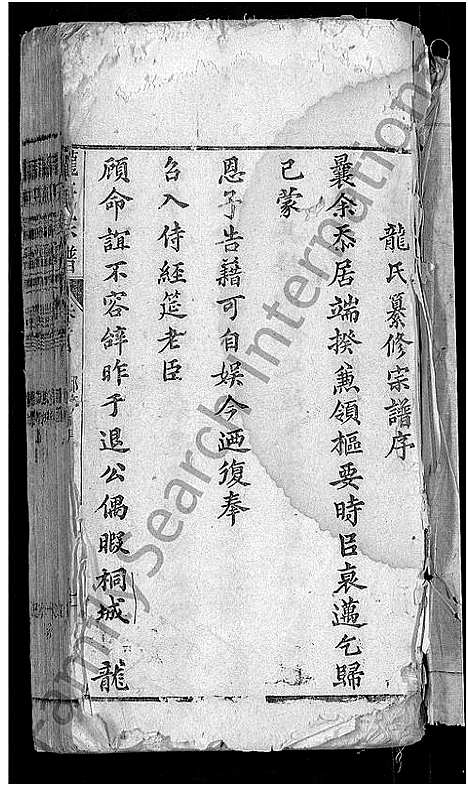 龍氏纂修宗譜序
曩余忝居端揆兼領樞要時臣衰邁乞歸
已蒙
恩予告藉可自娛今迺復奉
召入侍經筵老臣
顧命誼不容辭昨于退公偶暇桐城龍
龍氏宗譜
FamilySearch International